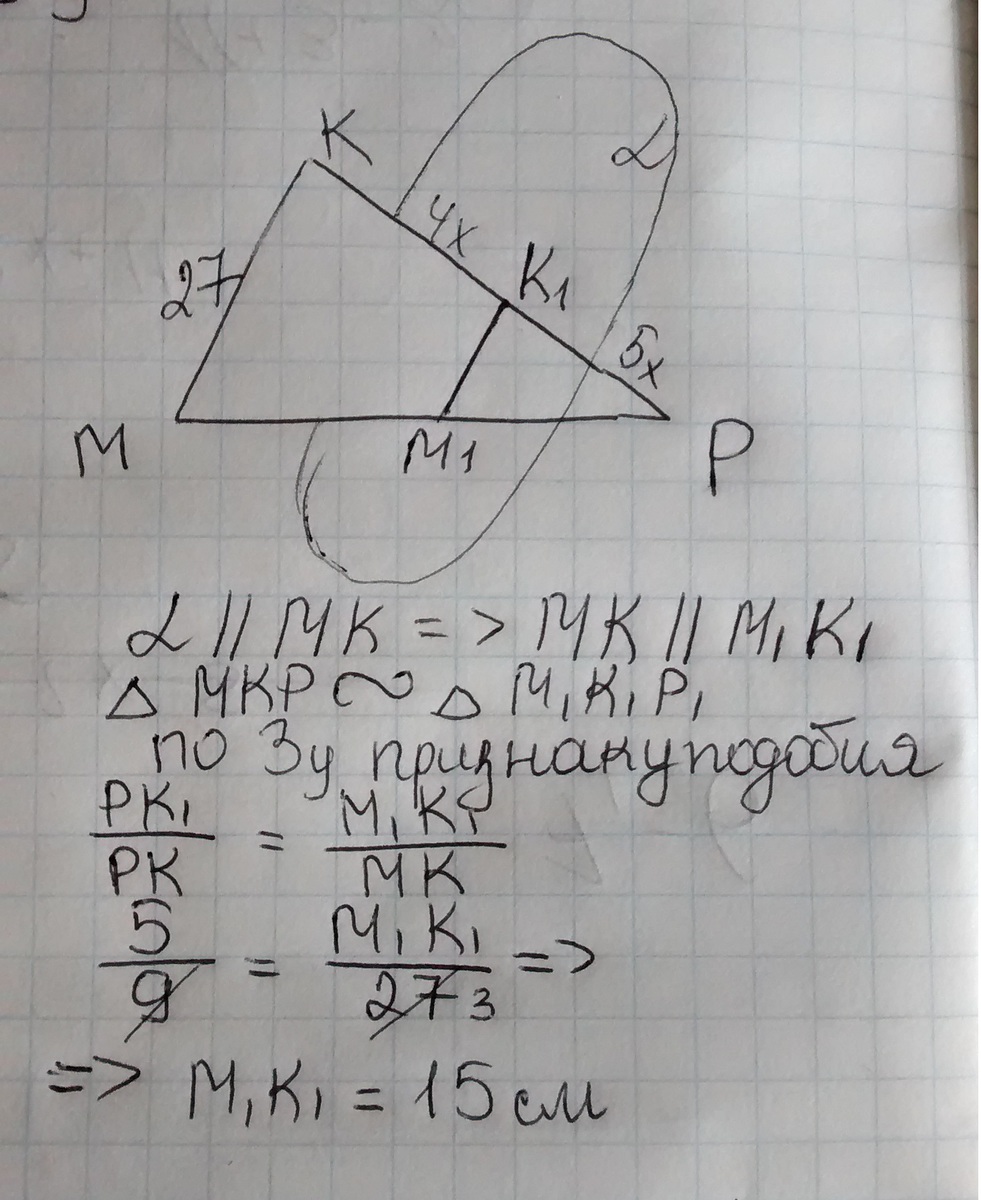 K
α
4x
27
K1
5x
M
M1
P
α // MK => MK // M1K1
Δ MKP ∾ Δ M1K1P1
по 3у признаку подобия
PK1/PK = M1K1/MK
5/9 = M1K1/27 3 =>
=> M1K1 = 15 см